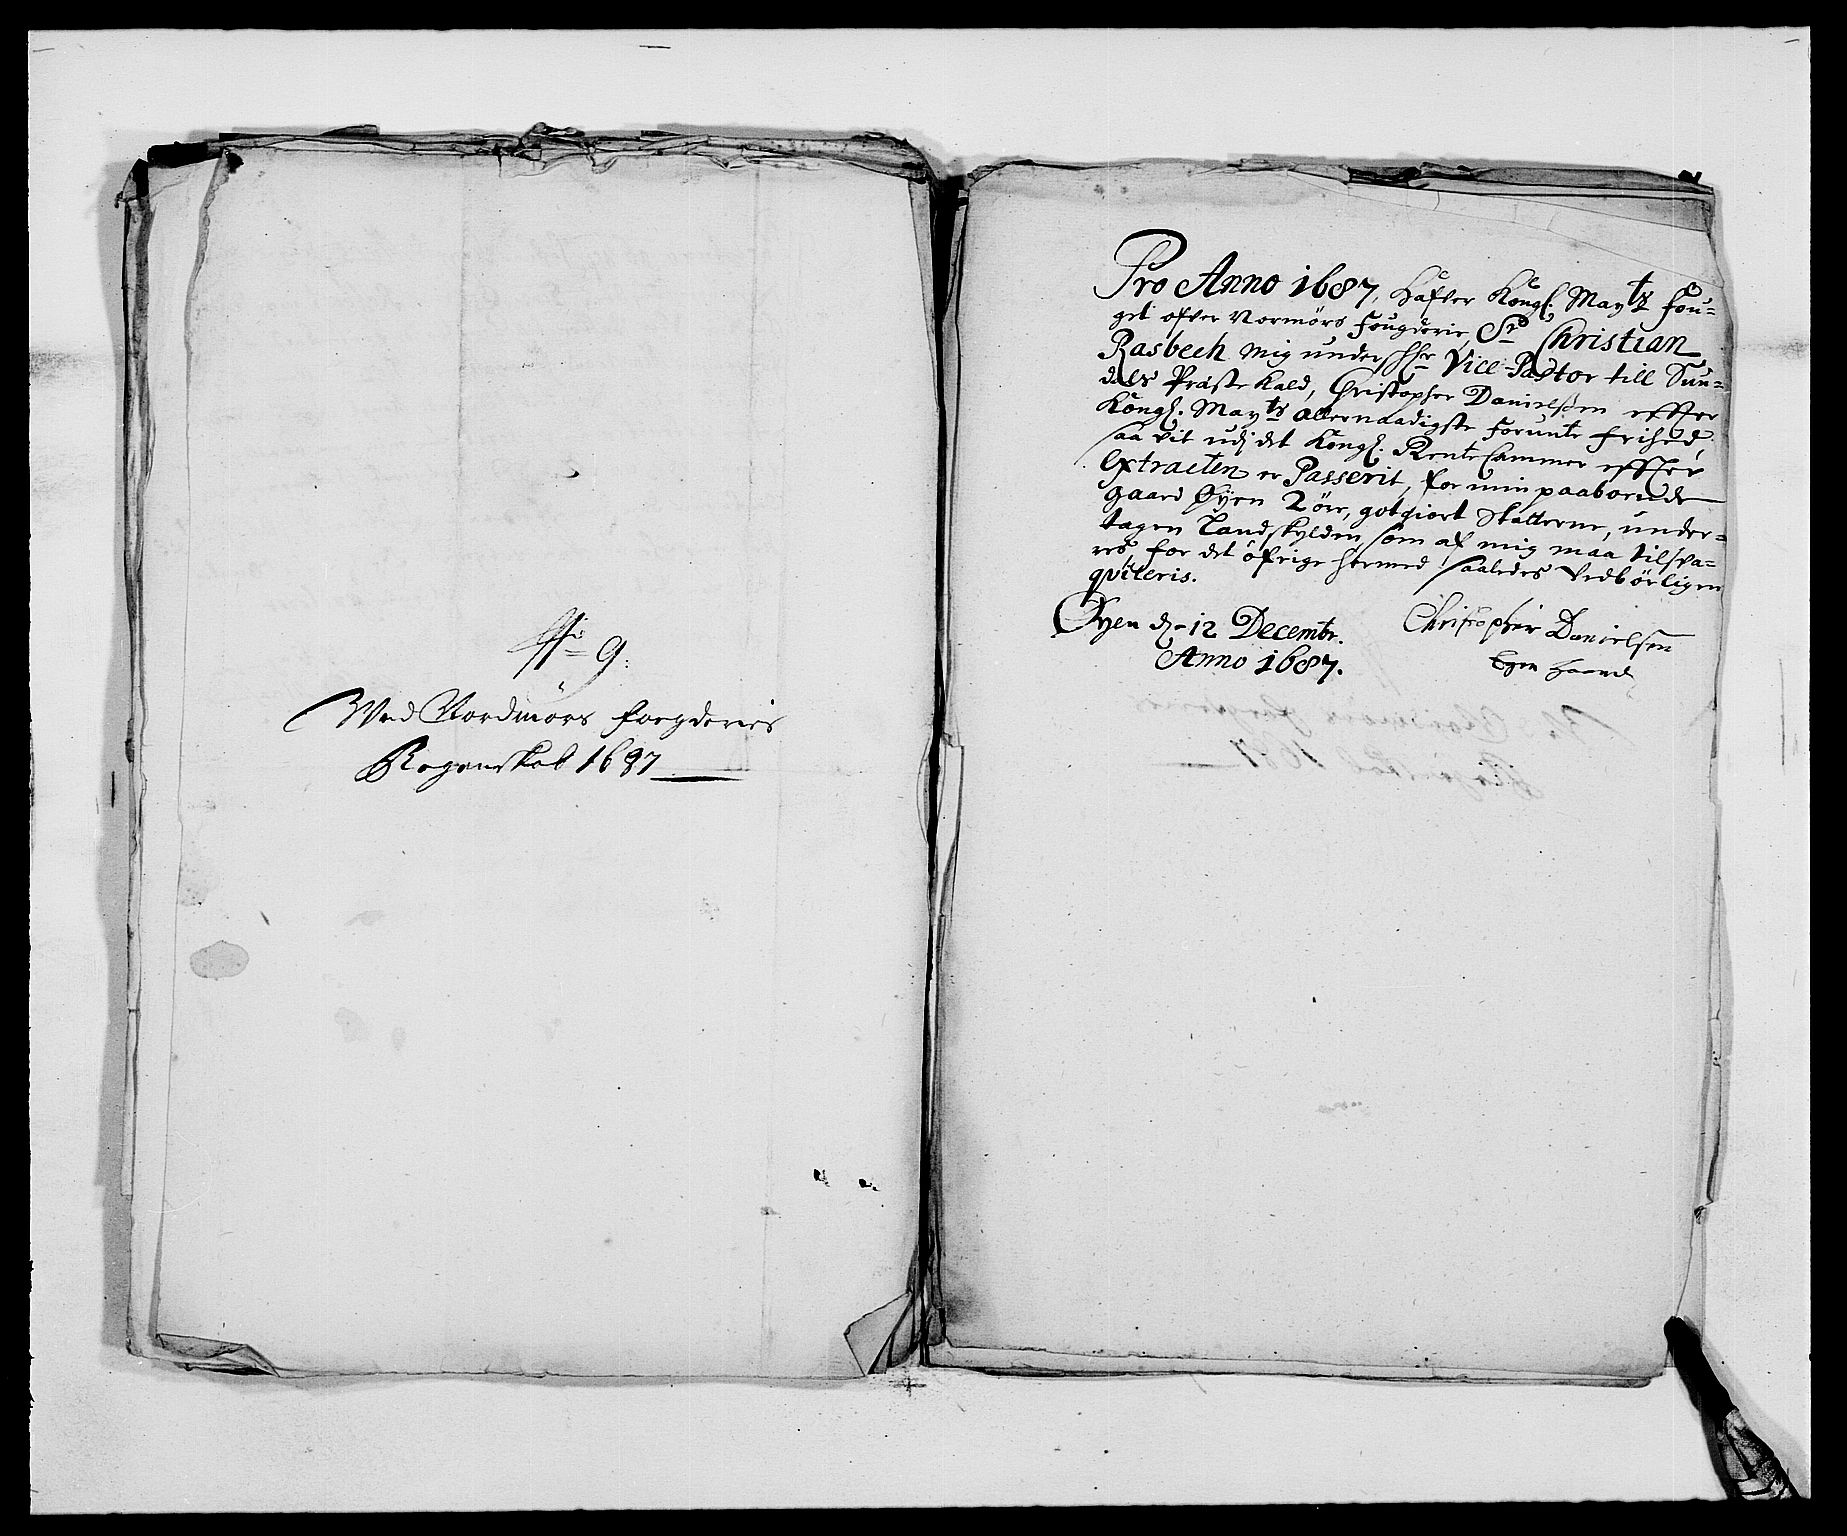 No 9:
Wed Nordmörs fougderies
Regenskab 1687
Pro Anno 1687, hafver Kongl. Mayts fou=
get ofver Normörs fougderie, Sr Christian
Rasbech mig underschr Vice-Pastor till Sun=
dals Præste kald, Christopher Danielsen effter
Kongl. Mayts allernaadigste forunte frihed,
saa vit udj det Kongl. Rentecammer effter
Extracten er Passerit, for min paaboende
gaard Øyen 2 öre, godgiort skatterne, under=
tagen Landskylden, som af mig maa tilsva=
res, for det öfrige hermed saaledes vedbörligen
qviteris.
Øyen d. 12 Decembr.
Anno 1687.
Christopher Danielsen
Egen haand